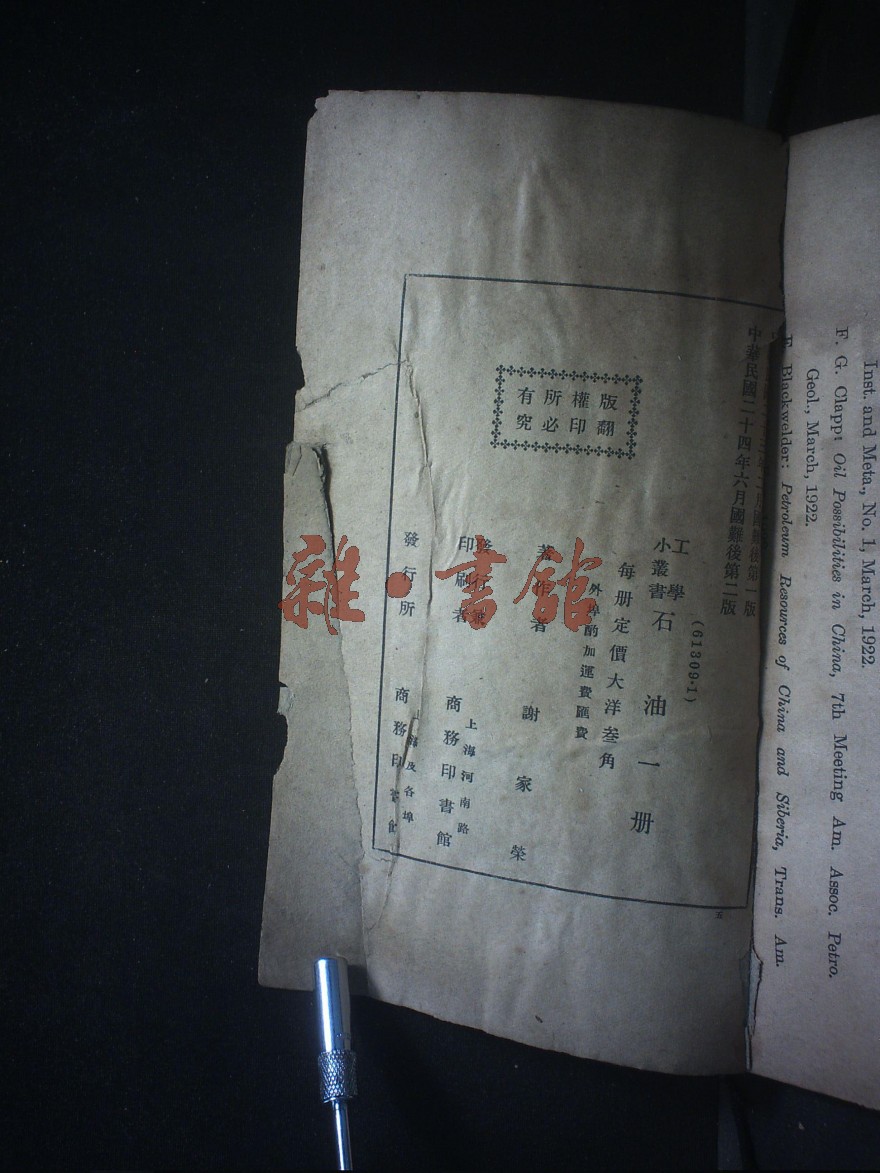 Inst. and Meta., No. 1, March, 1922.
F. G. Clapp: Oil Possibilities in China, 7th Meeting Am. Assoc. Petro.
Geol., March, 1922.
E. Blackwelder: Petroleum Resources of China and Siberia, Trans. Am.
國難後第一版
中華民國二十四年六月國難後第二版
(61309·1)
工學
小叢書
石油一册
每册定價大洋叁角
外埠酌加運費匯費
版權所有
翻印必究
著作者 謝家榮
發行兼
印刷者
上海河南路
商務印書館
發行所
上海及各埠
商務印書館
五
雜·書館